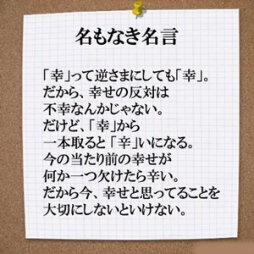 名もなき名言
「幸」って逆さまにしても「幸」。
だから、幸せの反対は
不幸なんかじゃない。
だけど、「幸」から
一本取ると「辛」いになる。
今の当たり前の幸せが
何か一つ欠けたら辛い。
だから今、幸せと思ってることを
大切にしないといけない。